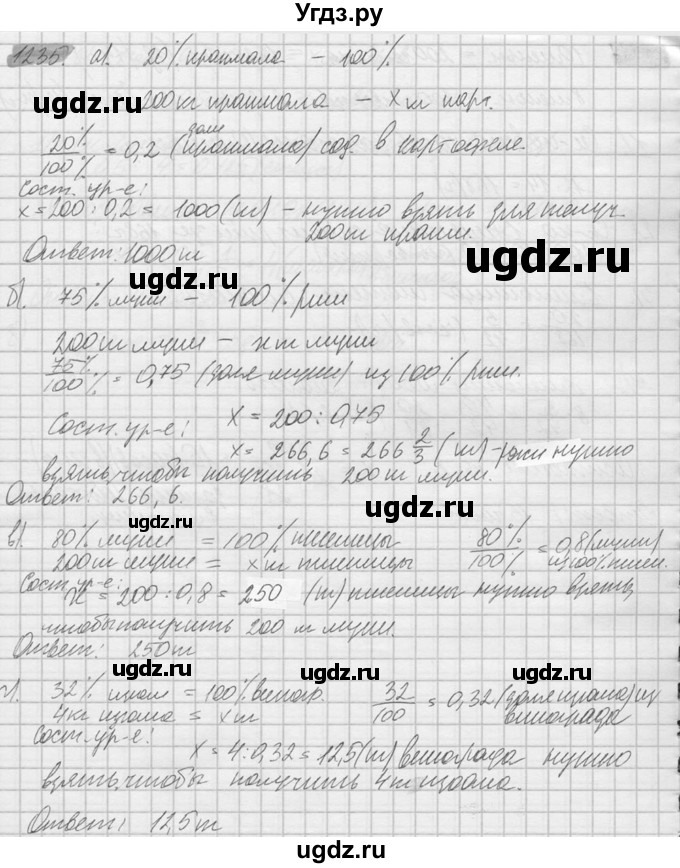 Угдз.ру
1235. а). 20% крахмала – 100%
200 кг крахмала – х т карт.
ugdz.ru ugdz.ru
20%/100% = 0,2 (доли крахмала) сод. в картофеле.
Сост. ур-е:
х = 200 : 0,2 = 1000 (т) – нужно взять для получ.
200 т крахм. ugdz.ru
Ответ: 1000 т
ugdz.ru
б). 75% муки – 100% ржи
200 т муки – х т муки
75%/100% = 0,75 (доля муки) из 100% ржи.
Сост. ур-е: х = 200 : 0,75
х = 266,6 = 266 2/3 (т) – ржи нужно
взять, чтобы получить 200 т муки.
Ответ: 266,6.
ugdz.ru ugdz.ru
в). 80% муки = 100% пшеницы 80%/100% = 0,8 (муки)
200 т муки = х т пшеницы из 100% пшен.
Сост. ур-е:
х = 200 : 0,8 = 250 (т) пшеницы нужно взять,
чтобы получить 200 т муки.
Ответ: 250 т
ugdz.ru ugdz.ru
г). 32% изюм = 100% виногр. 32/100 = 0,32 (доля изюма) из
4 кг изюма = х т винограда
Сост. ур-е:
ugdz.ru
х = 4 : 0,32 = 12,5 (т) винограда нужно
взять, чтобы получить 4 т изюма.
Ответ: 12,5 т
ugdz.ru ugdz.ru